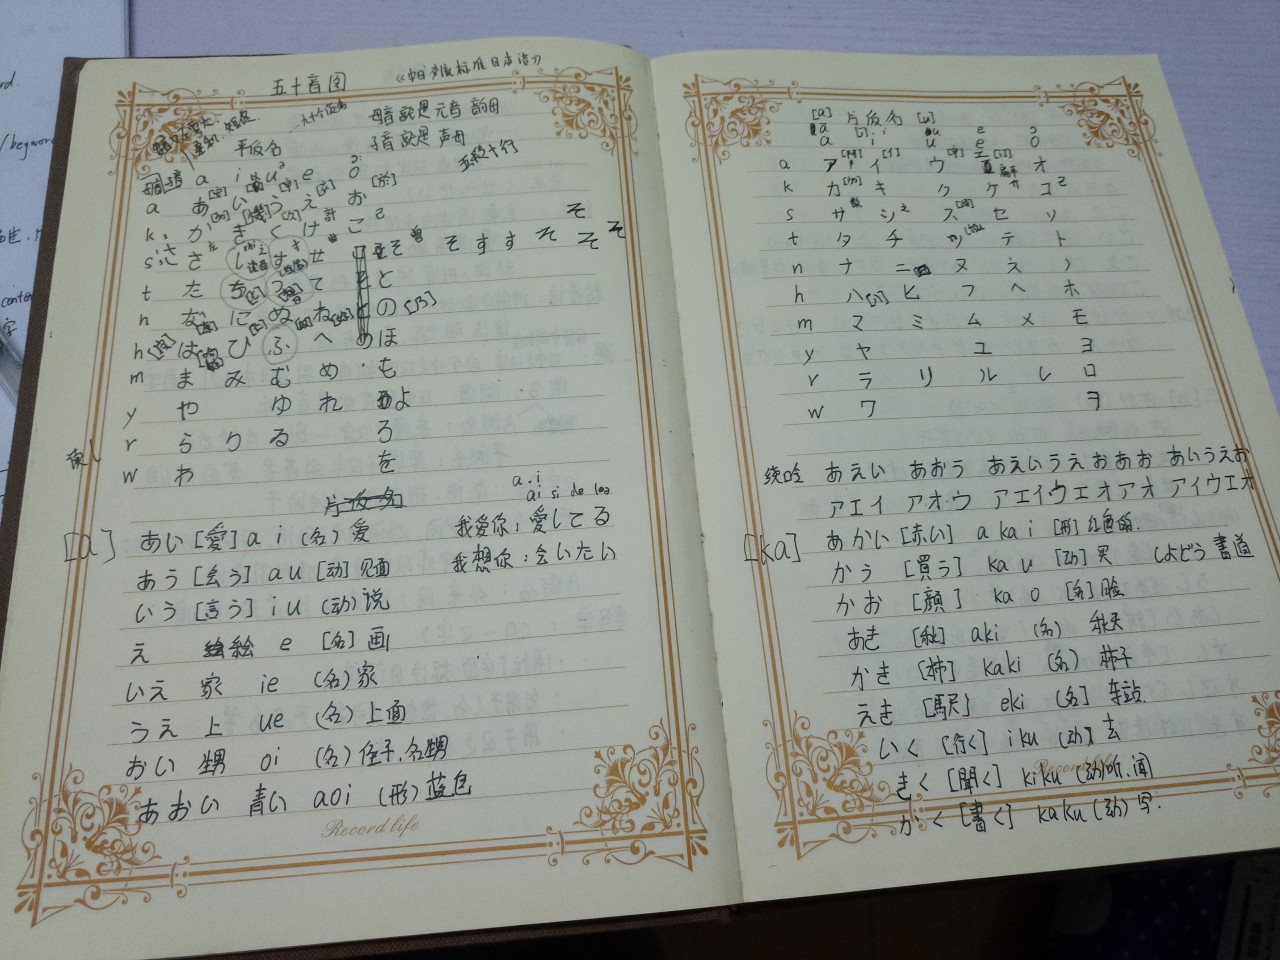 五十音图
母音就是元音 韵母
平仮名
子音就是声母
五段十行
a i u e o
a あ い う え お
k か き く け こ
s さ し す せ そ そ す す そ そ そ そ
t た ち つ て と
n な に ぬ ね の
h は ひ ふ へ ほ
m ま み む め も
y や ゆ れ よ
r ら り る ろ
w わ を
a.i
ai si de
[a] あい [愛] ai (名) 爱 我爱你: 愛してる
あう [会う] au [动] 见面 我想你: 会いたい
いう [言う] iu (动) 说
え 絵 e [名] 画
いえ 家 ie (名) 家
うえ 上 ue (名) 上面
おい 甥 oi (名) 侄子, 外甥
あおい 青い aoi (形) 蓝色
Record life
[a] 片仮名 [u]
a i u e o
a ア イ ウ エ オ
k カ キ ク ケ コ
s サ シ ス セ ソ
t タ チ ツ テ ト
n ナ ニ ヌ ネ ノ
h ハ ヒ フ ヘ ホ
m マ ミ ム メ モ
y ヤ ユ ヨ
r ラ リ ル レ ロ
w ワ ヲ
绕口 あえい あおう あえいうえ おあお あいうえお
アエイ アオウ アエイウエオアオ アイウエオ
[ka] あかい [赤い] akai [形] 红色的.
かう [買う] kau [动] 买 しよどう 書道
かお [顔] kao [名] 脸
あき [秋] aki (名) 秋天
かき [柿] kaki (名) 柿子
えき [駅] eki [名] 车站
いく [行く] iku (动) 去
きく [聞く] kiku (动) 听. 闻
かく [書く] kaku (动) 写.